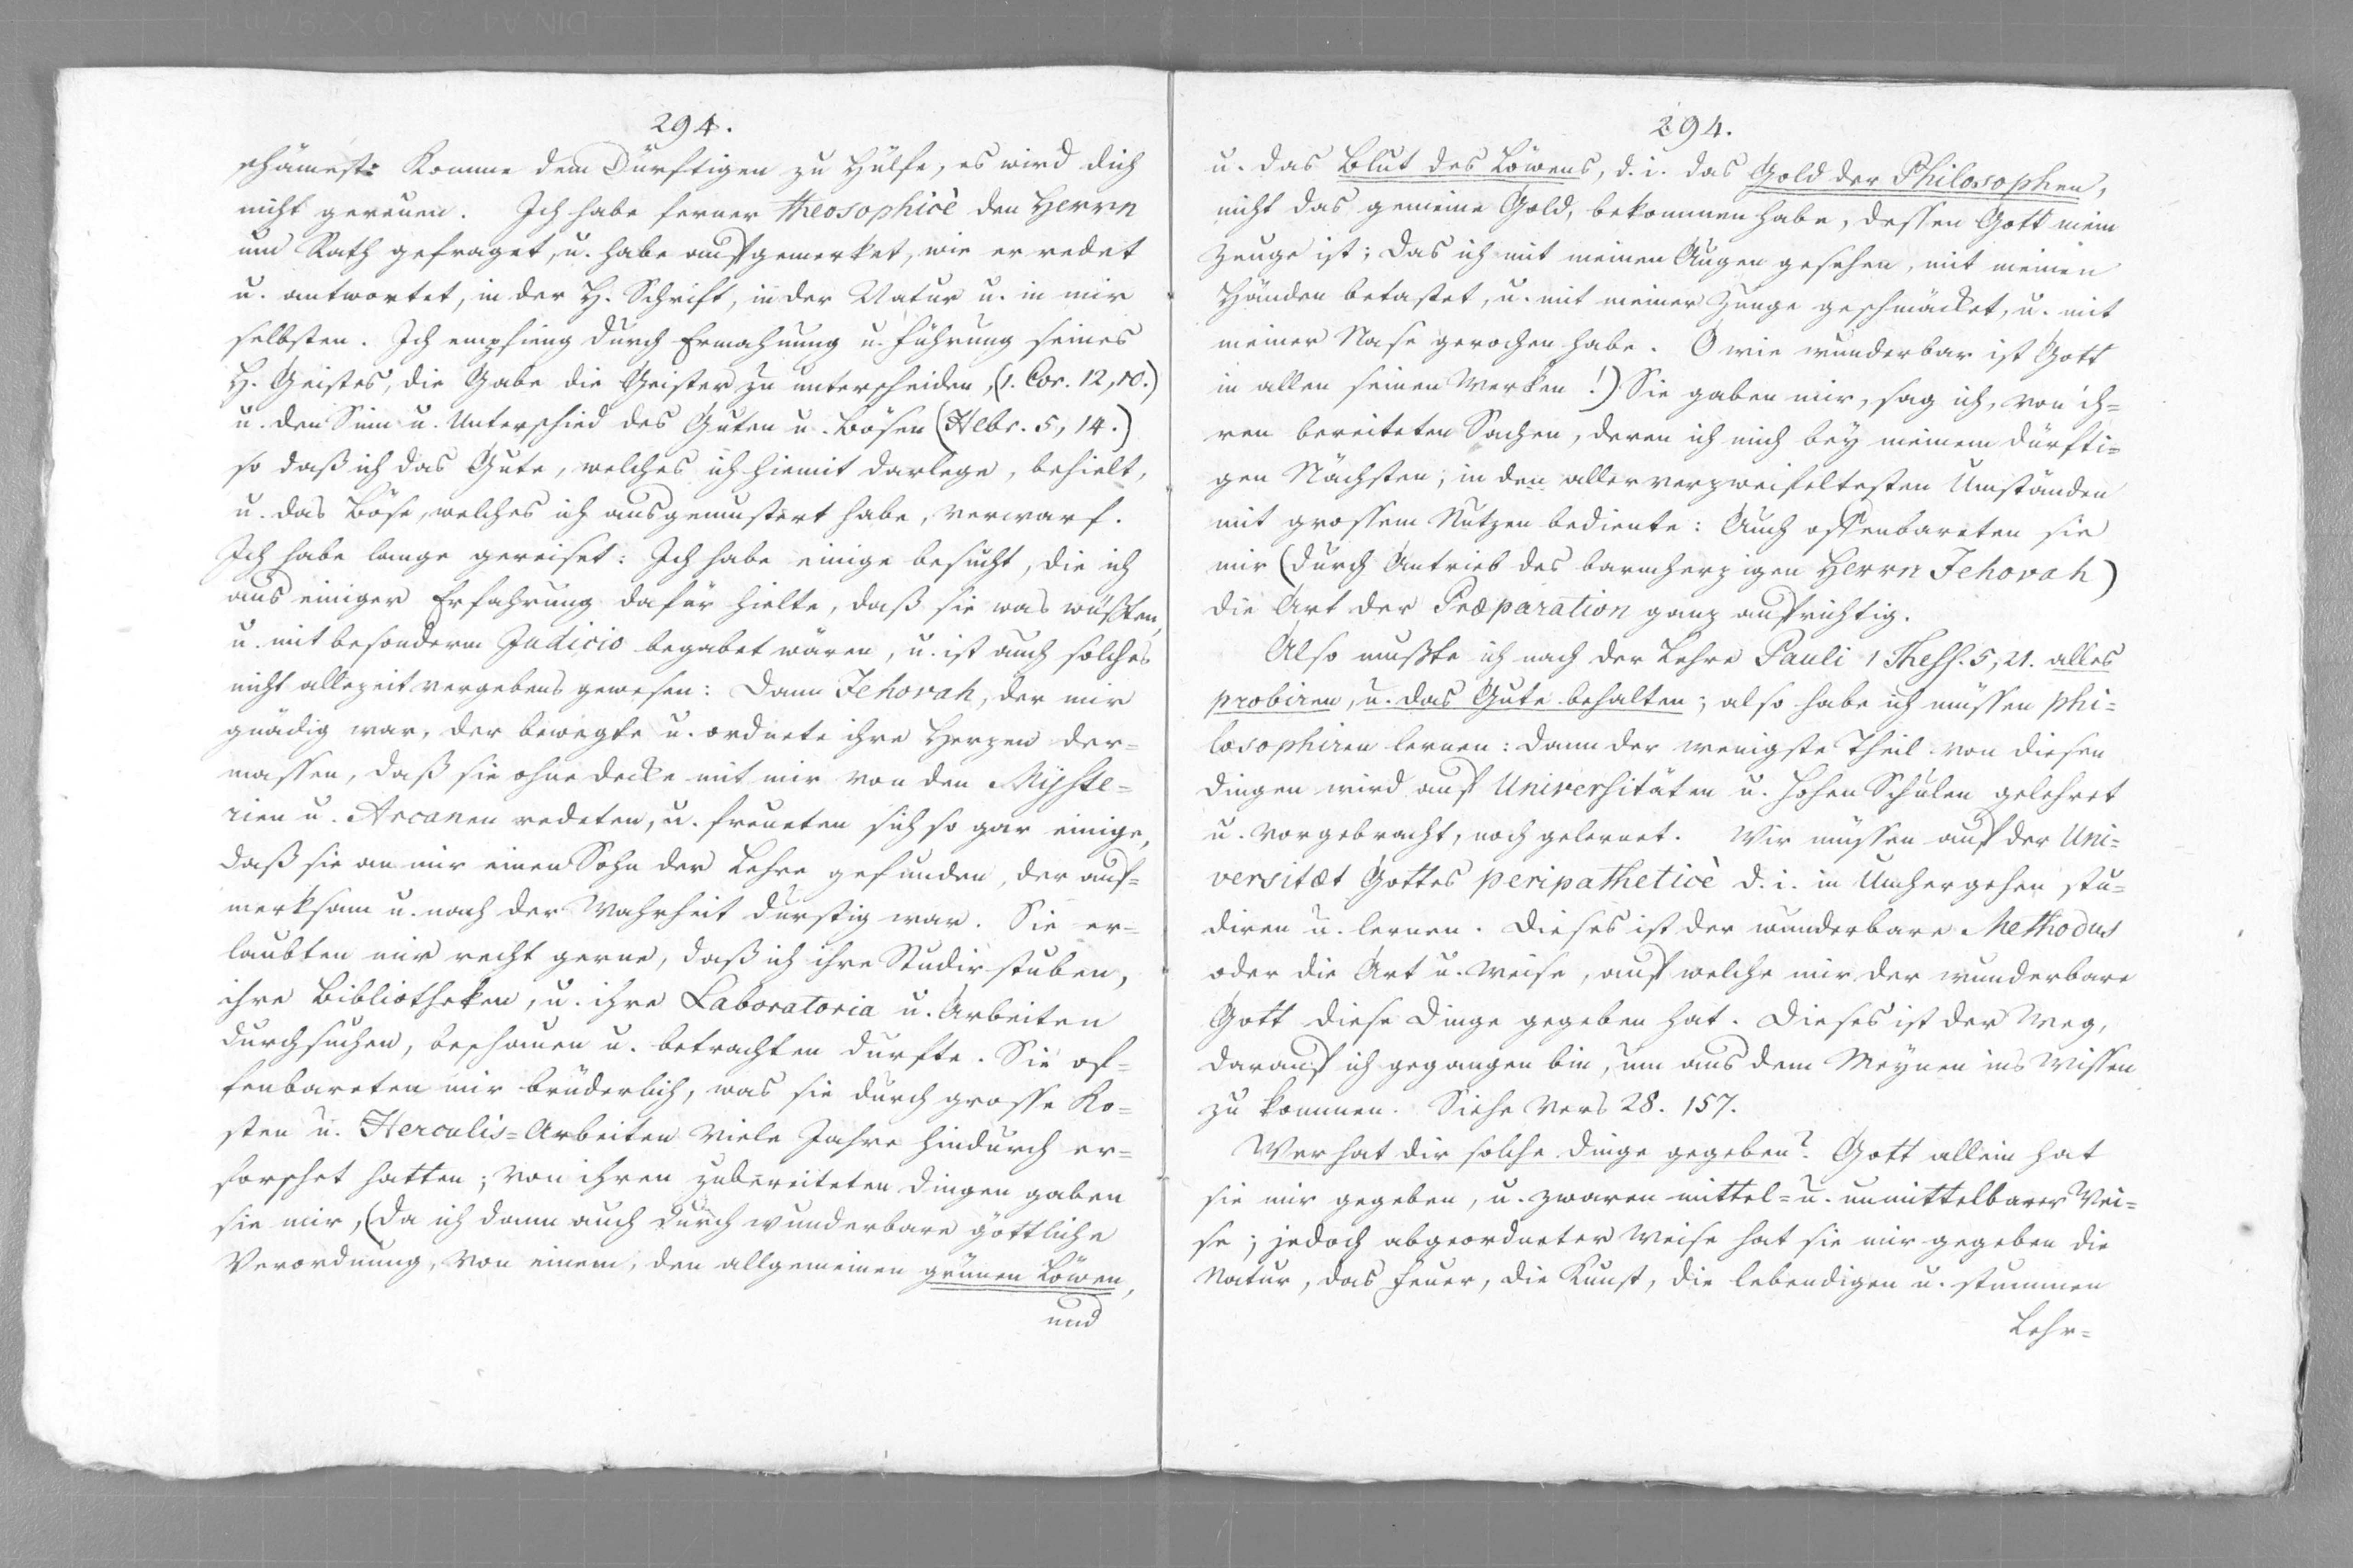 294.
schämest: Komme dem Dürftigen zu Hülfe, es wird dich
nicht gereuen. Ich habe ferner theosophicè den Herrn
um Rath gefraget, u. habe aufgemerket, wie er redet
u. antwortet, in der H. Schrift, in der Natur u. in mir
selbsten. Ich empfieng durch Ermahnung u. Führung seines
H. Geistes, die Gabe die Geister zu unterscheiden, (1. Cor. 12, 10.)
u. den Sinn u. Unterschied des Guten u. Bösen (Hebr. 5, 14.)
so daß ich das Gute, welches ich hiemit darlege, behielt,
u. das Böse, welches ich ausgemustert habe, verwarf.
Ich habe lange gereiset: Ich habe einige besucht, die ich
aus einiger Erfahrung dafür hielte, daß sie was wüßten,
u. mit besonderm Judicio begabet wären, u. ist auch solches
nicht allezeit vergebens gewesen: Dann Jehovah, der mir
gnädig war, der bewegte u. ordnete ihre Herzen der=
massen, daß sie ohne Decke mit mir von den Myste=
rien u. Arcanen redeten, u. freueten sich so gar einige,
daß sie an mir einen Sohn der Lehre gefunden, der auf=
merksam u. nach der Wahrheit durstig war. Sie er=
laubten mir recht gerne, daß ich ihre Studirstuben,
ihre Bibliotheken, u. ihre Laboratoria u. Arbeiten
durchsuchen, beschauen u. betrachten durfte. Sie of=
fenbareten mir brüderlich, was sie durch grosse Ko=
sten u. Herculis=Arbeiten viele Jahre hindurch er=
forschet hatten; von ihren zubereiteten Dingen gaben
sie mir, (da ich dann auch durch wunderbare göttliche
Verordnung, von einem, den allgemeinen grünen Löwen,
und
294.
u. das Blut des Löwens, d. i. das Gold der Philosophen,
nicht das gemeine Gold, bekommen habe, dessen Gott mein
Zeuge ist; das ich mit meinen Augen gesehen, mit meinen
Händen betastet, u. mit meiner Zunge geschmäcket, u. mit
meiner Nase gerochen habe. O wie wunderbar ist Gott
in allen seinen Werken!) Sie gaben mir, sag ich, von ih=
ren bereiteten Sachen, deren ich mich bey meinem dürfti=
gen Nächsten, in den allerverzweifeltesten Umständen
mit grossem Nutzen bediente: Auch offenbareten sie
mir (durch Antrieb des barmherzigen Herrn Jehovah)
die Art der Præparation ganz aufrichtig.
Also mußte ich nach der Lehre Pauli 1 Thess. 5, 21. alles
probiren, u. das Gute behalten; also habe ich müssen phi=
losophiren lernen: dann der wenigste Theil von diesen
Dingen wird auf Universitäten u. hohen Schulen gelehret
u. vorgebracht, noch gelernet. Wir müssen auf der Uni=
versitæt Gottes peripatheticè d. i. in Umhergehen stu=
diren u. lernen. Dieses ist der wunderbare Methodus
oder die Art u. Weise, auf welche mir der wunderbare
Gott diese Dinge gegeben hat. Dieses ist der Weg,
darauf ich gegangen bin, um aus dem Meynen ins Wissen
zu kommen. Siehe Vers 28. 157.
Wer hat dir solche Dinge gegeben? Gott allein hat
sie mir gegeben, u. zwaren mittel= u. unmittelbarer Wei=
se; jedoch abgeordneter Weise hat sie mir gegeben die
Natur, das Feuer, die Kunst, die lebendigen u. stummen
Lehr=